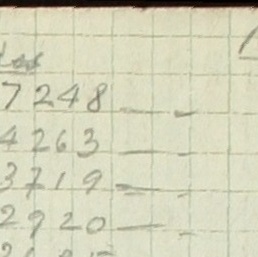 7248 — -
4263 — -
3719 — -
2920 — -